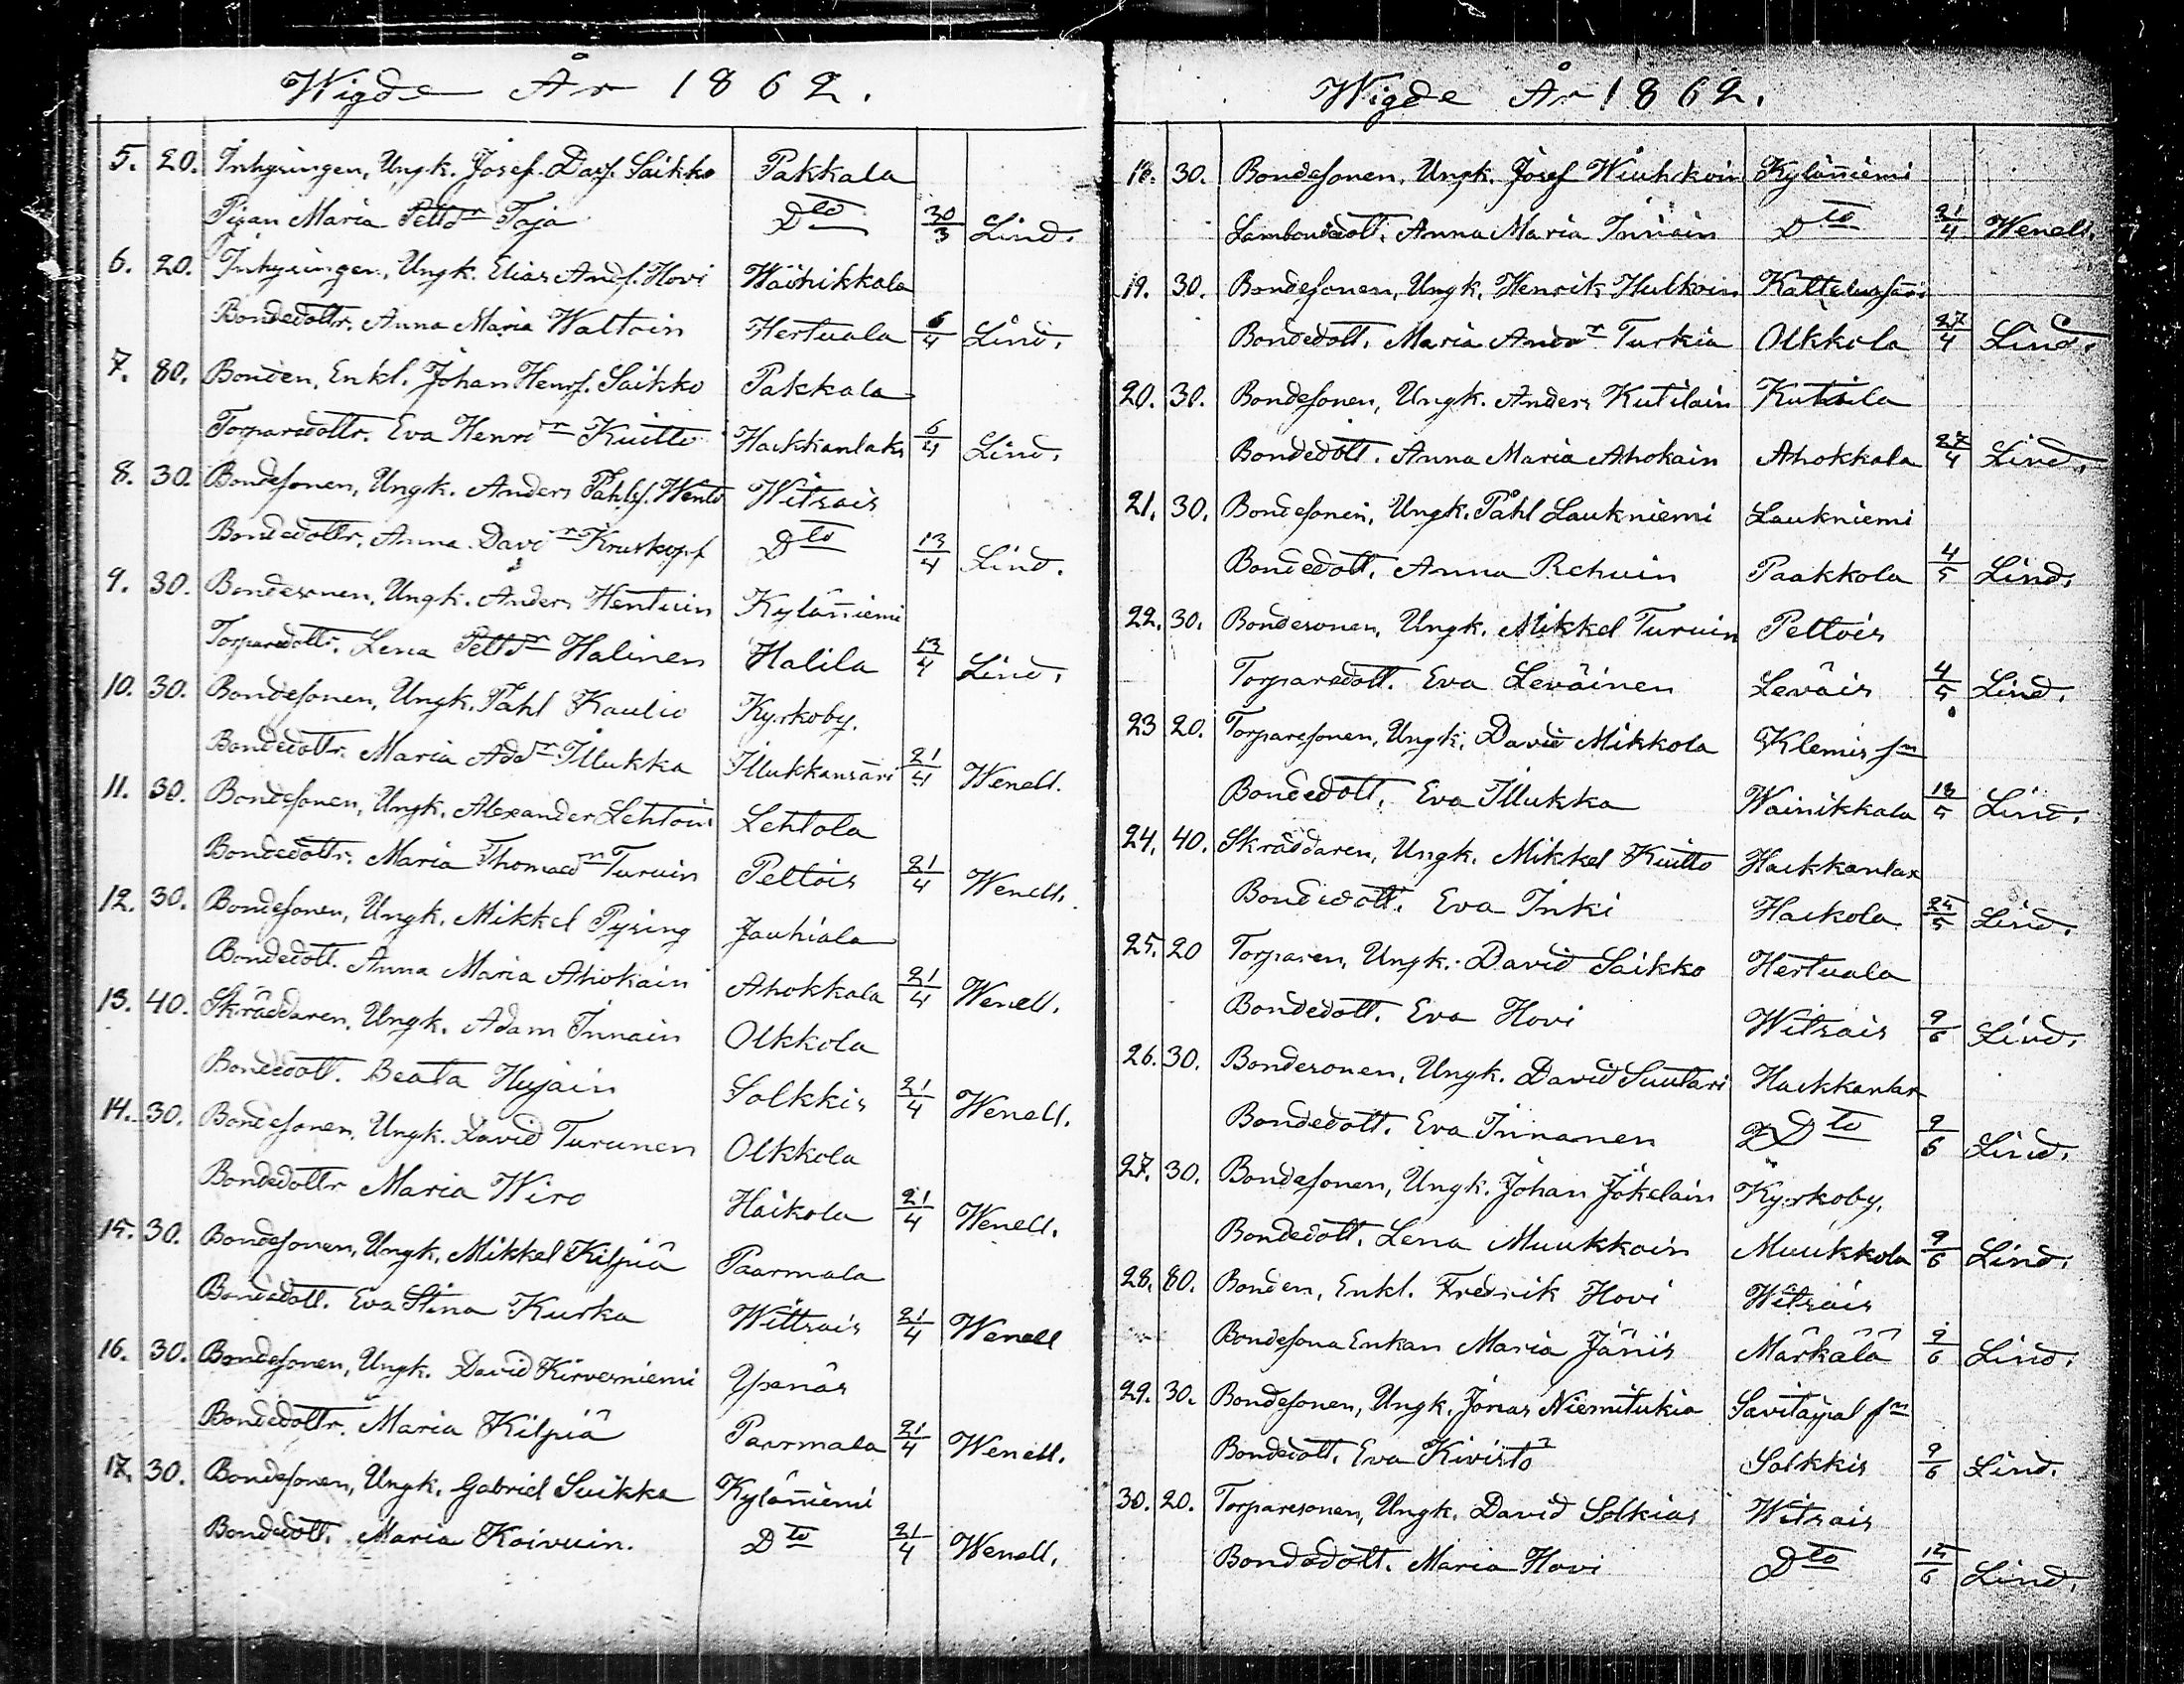 Wigde År 1862.
5. 20. Inhysingen, Ungk. Josef Davf. Saikko Pakkala
Pigan Maria Pettdr Toja Dto 30/3 Lind.
6. 20. Inhysingen, Ungk. Elias Andf. Hovi Wäinikkala
Bondedottr. Anna Maria Waltoin Hertuala 6/4 Lind.
7. 80. Bonden, Enkl. Johan Henrf. Saikko Pakkala
Torparedottr. Eva Henrdr Kuitto Haikkanlaks 6/4 Lind.
8. 30. Bondefonen, Ungk. Anders Påhlsf. Wento Witsais
Bondedottr. Anna Davdr Kruskopf Dto 13/4 Lind.
9. 30. Bondesonen, Ungk. Anders Hentuin Kyläniemi
Torparedottr. Lena Pettdr Halinen Halila 13/4 Lind.
10. 30. Bondefonen, Ungk. Påhl Kaulio Kyrkoby.
Bondedottr. Maria Addr Illukka Illukkansäri 21/4 Wenell.
11. 30. Bondefonen, Ungk. Alexander Lehtoin Lehtola
Bondedottr. Maria Thomasdr Turuin Peltois 21/4 Wenell.
12. 30. Bondefonen, Ungk. Mikkel Pysing Jauhiala
Bondedott. Anna Maria Ahokain Ahokkala 21/4 Wenell.
13. 40. Skräddaren, Ungk. Adam Innain Olkkola
Bondedott. Beata Hujain Solkkis 21/4 Wenell.
14. 30. Bondefonen, Ungk. David Turunen Olkkola
Bondedottr Maria Wiro Haikola 21/4 Wenell.
15. 30. Bondefonen, Ungk. Mikkel Kilpiä Paarmala
Bondedott. Eva Stina Kurka Wittsais 21/4 Wenell
16. 30. Bondefonen, Ungk. David Kirvesniemi Yxenäs
Bondedottr. Maria Kilpiä Paarmala 21/4 Wenell.
17. 30. Bondefonen, Ungk. Gabriel Suikka Kyläniemi
Bondedott. Maria Koivuin. Dto 21/4 Wenell.
Wigde År 1862.
18. 30. Bondefonen, Ungk. Josef Wiuhkoin Kyläniemi
Lambondedott. Anna Maria Innain Dto 21/4 Wenell.
19. 30. Bondefonen, Ungk. Henrik Hulkoin
Bondedott. Maria Anddr Turkia Olkkola 27/4 Lind.
20. 30. Bondefonen, Ungk. Anders Kutilain Kutila
Bondedott. Anna Maria Ahokain Ahokkala 27/4 Lind.
21. 30. Bondefonen, Ungk. Påhl Laukniemi Laukniemi
Bondedott. Anna Rehuin Paakkola 4/5 Lind.
22. 30. Bondesonen, Ungk. Mikkel Turuin Peltois
Torparedott. Eva Leväinen Leväis 4/5 Lind.
23 20. Torparefonen, Ungk. David Mikkola Klemis fn
Bondedott. Eva Illukka Wainikkala 18/5 Lind.
24. 40. Skräddaren, Ungk. Mikkel Kuitto Haikkanlax
Bondedott. Eva Inki Haikola 25/5 Lind.
25. 20 Torparen, Ungk. David Saikko Hertuala
Bondedott. Eva Hovi Witsais 9/6 Lind.
26. 30. Bondesonen, Ungk. David Suutari Haikkanlax
Bondedott. Eva Innanen Dto 9/6 Lind.
27. 30. Bondefonen, Ungk. Johan Jokelain Kyrkoby.
Bondedott. Lena Muukkoin Muukkola 9/6 Lind.
28. 80. Bonden, Enkl. Fredrik Hovi Witsais
Bondefona Enkan Maria Jänis Märkälä 9/6 Lind.
29. 30. Bondefonen, Ungk. Jonas Niemitukia Savitaipal fn
Bondedott. Eva Kivisto Solkkis 9/6 Lind.
30. 20. Torparesonen, Ungk. David Solkias Witsais
Bondedott. Maria Hovi Dto 15/6 Lind.